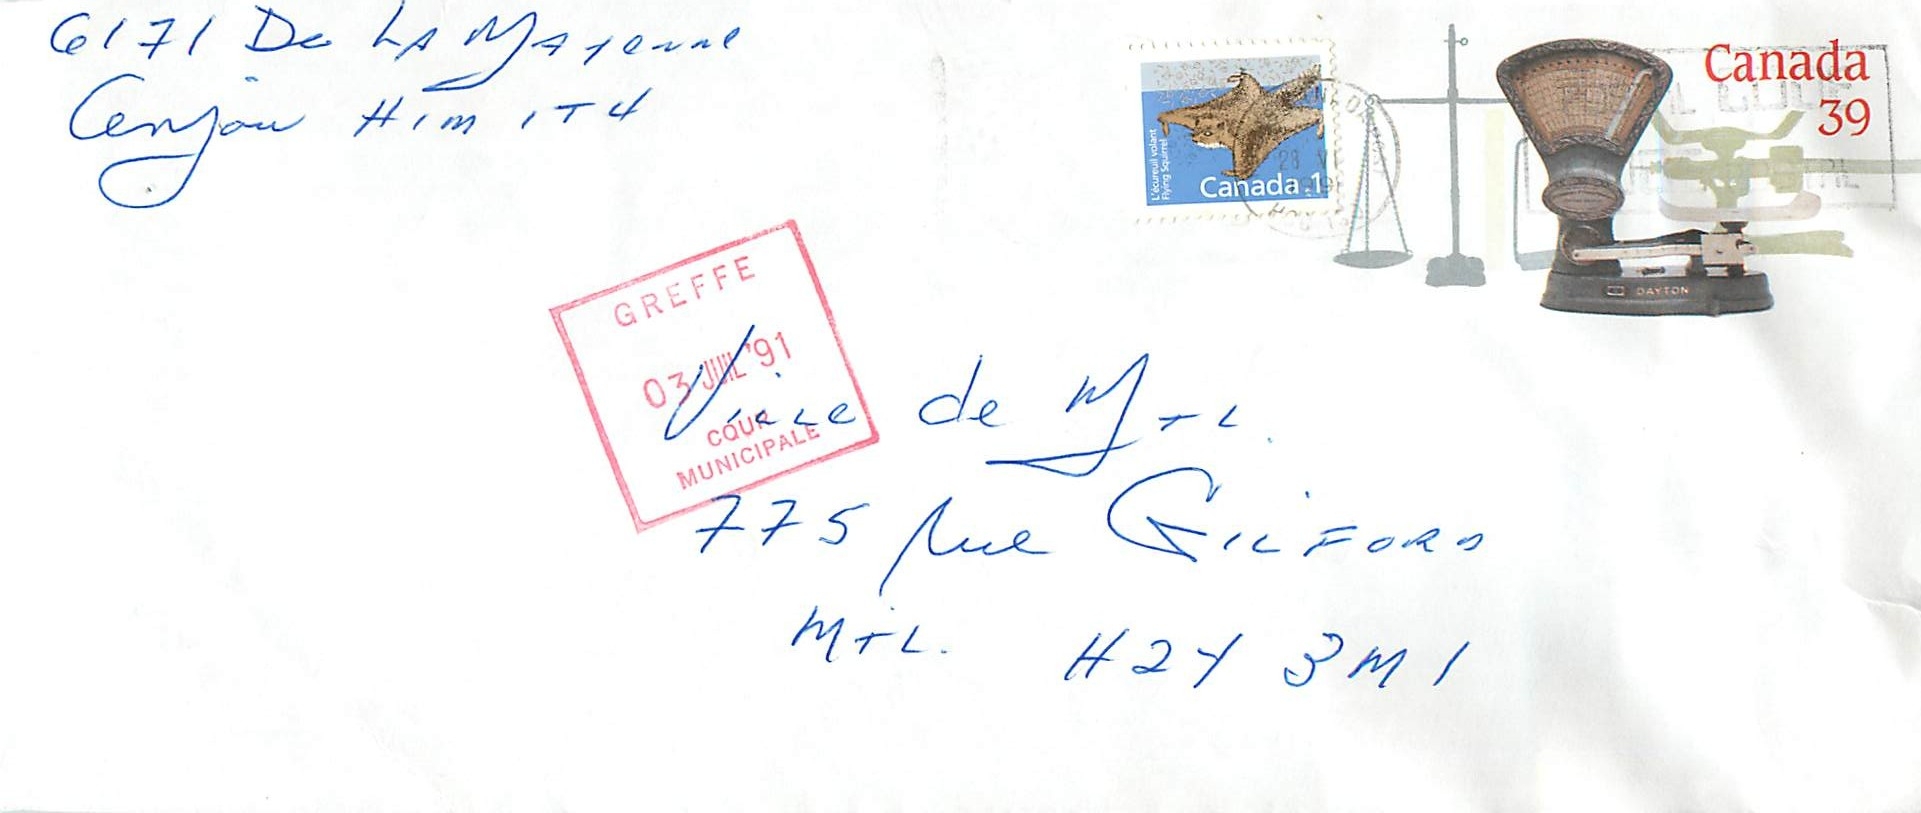 6171 De La Mayenne
Anjou H1M 1T4
L'écureuil volant
Flying Squirrel
Canada 1
Canada
39
DAYTON
GREFFE
03 JUIL '91
COUR
MUNICIPALE
Ville de Mtl.
775 Rue Gilford
Mtl. H2Y 3M1